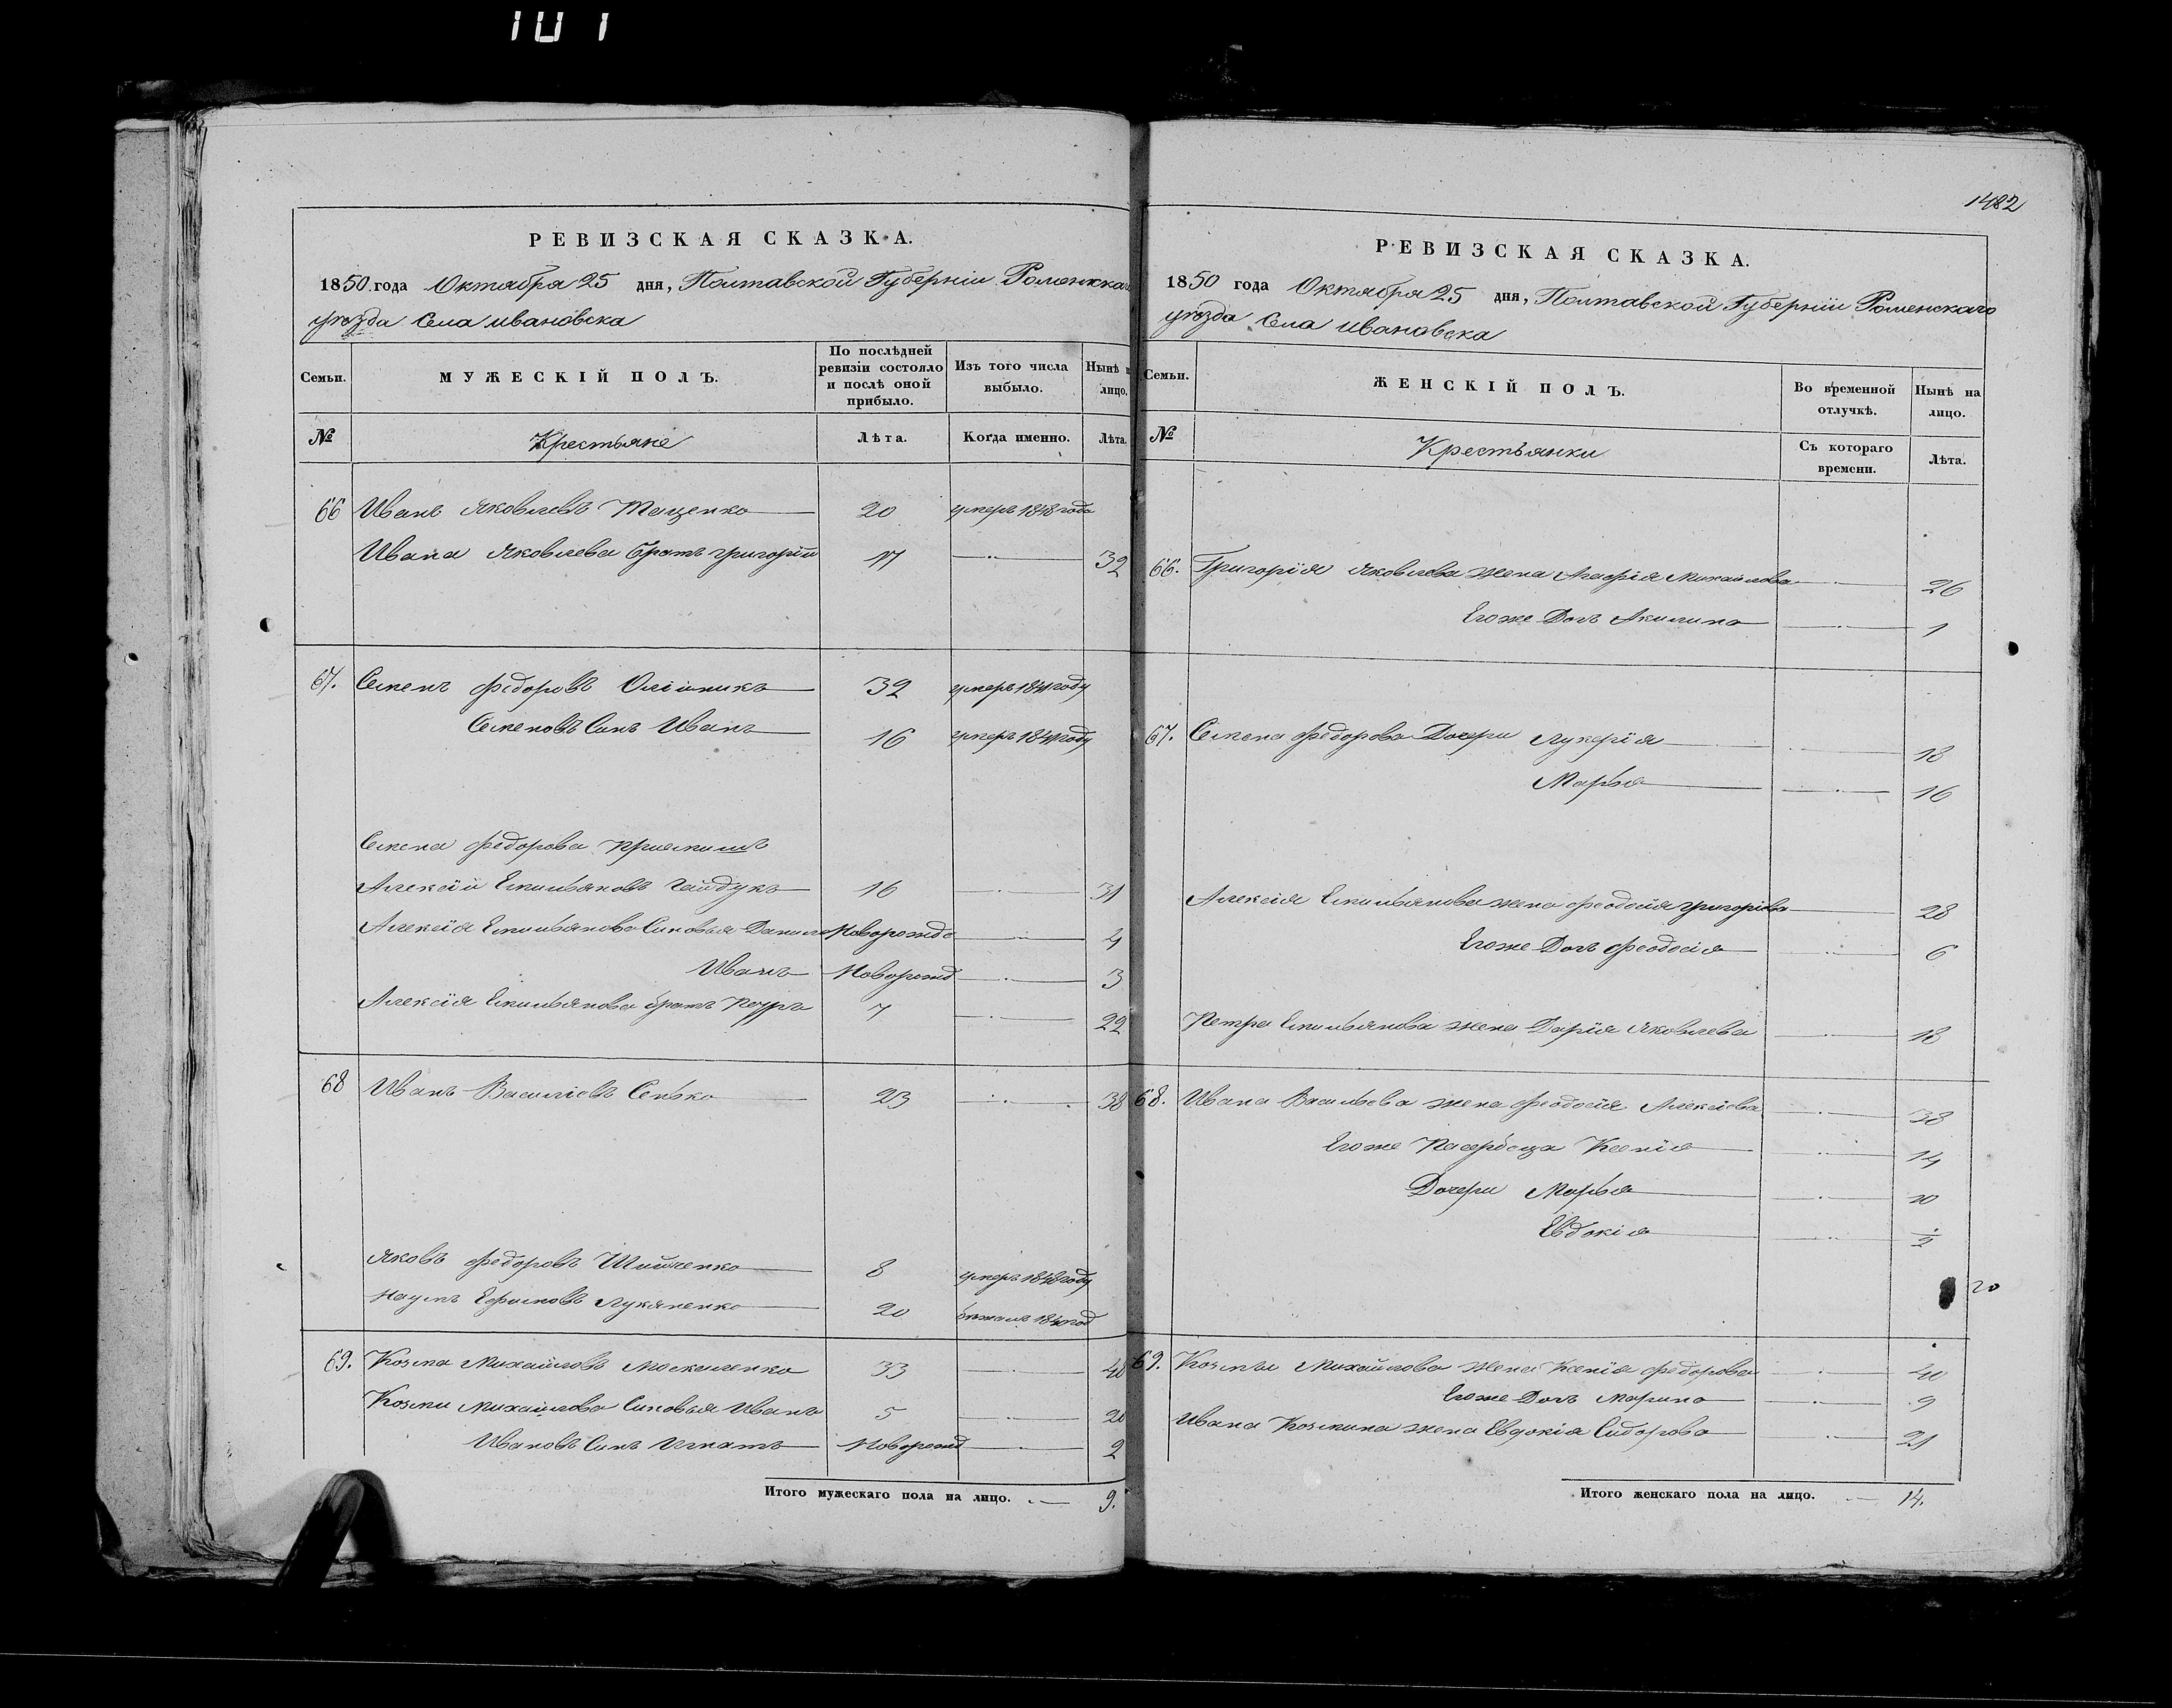 101
РЕВИЗСКАЯ СКАЗКА.
1850 года Октября 25 дня, Полтавской Губерніи Роменскаго
уѣзда Села Ивановска
Семьи.
МУЖЕСКІЙ ПОЛЪ.
По послѣдней ревизіи состояло и послѣ оной прибыло.
Изъ того числа выбыло.
Нынѣ на лицо.
№
Крестьяне
Лѣта.
Когда именно.
Лѣта.
66 Иванъ Яковлевъ Тищенко 20 умеръ 1848 года
Ивана Яковлева братъ Григорій 17 32
67. Семенъ Федоровъ Олійникъ 32 умеръ 1841 году
Семеновъ Сынъ Иванъ 16 умеръ году
Семена Федорова
Алексій Емильяновъ Гайдукъ 16 31
Алексія Емильянова Сыновья Данило Новорожд 4
Иванъ Новорожд 3
Алексія Емильянова братъ Петръ 7 22
68 Иванъ Василіевъ Сенько 23 38
Яковъ Федоровъ 8 умеръ 1848 году
Наумъ Ефимовъ Лукяненко 20 бежалъ год
69. Козма Михайловъ Москаленко 33 48
Козми Михайлова Сыновья Иванъ 5 20
Ивановъ Сынъ Игнатъ Новорожд 2
Итого мужескаго пола на лицо. 9.
1482
РЕВИЗСКАЯ СКАЗКА.
1850 года Октября 25 дня, Полтавской Губерніи Роменскаго
уѣзда Села Ивановска
Семьи.
ЖЕНСКІЙ ПОЛЪ.
Во временной отлучкѣ.
Нынѣ на лицо.
№
Крестьянки
Съ котораго времени.
Лѣта.
66. Григорія Яковлева жена Агафія Михайлова 26
Егоже Дочь Акилина 1
67. Семена Федорова Дочери Лукерія 18
Марья 16
Алексія Емильянова жена Феодосія Григорієва 28
Егоже Дочь Феодосія 6
Петра Емильянова жена Дарія Яковлева 18
68. Ивана Васильева жена Феодосія Алексіева 38
Егоже Ксенія 14
Дочери Марья 10
Евдокія ½
20
69. Козмы Михайлова жена Ксенія Федорова 40
Егоже Дочь Марина 9
Ивана Козмина жена Евдокія Сидорова 21
Итого женскаго пола на лицо. 14.